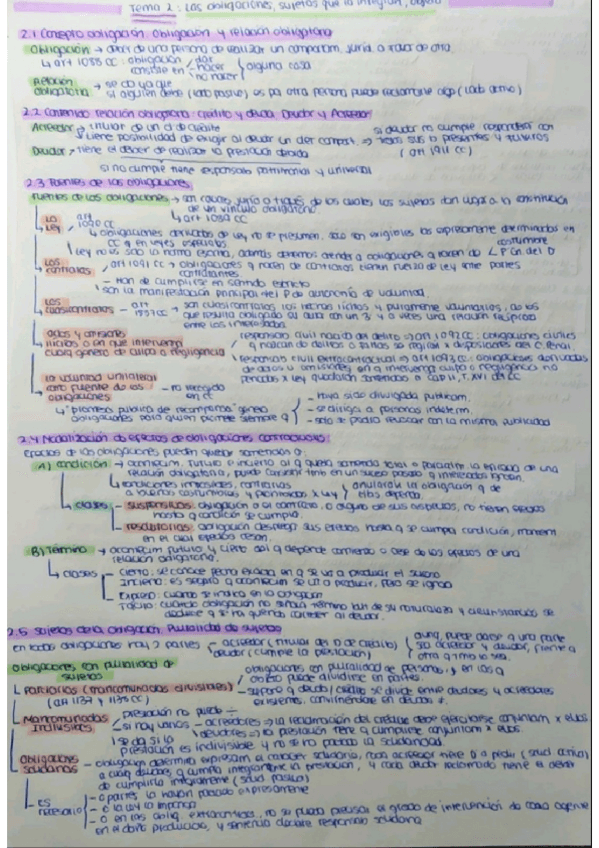 Tema 2: Las obligaciones, sujetos que la integran, objeto
2.1 Concepto obligación. Obligación y relación obligatoria
Obligación → deber de una persona de realizar un comportam. jurid. a favor de otra
↳ art 1088 CC: obligación consiste en dar hacer no hacer alguna cosa
Relación obligatoria → se da ya que si alguien debe (lado pasivo) es pq otra persona puede reclamarle algo (lado activo)
2.2 Contenido relación obligatoria: crédito y deuda. Deudor y Acreedor
Acreedor → titular de un d. de crédito
tiene posibilidad de exigir al deudor un det. comport. ⇒ si deudor no cumple responderá con todos sus b. presentes y futuros
Deudor → tiene el deber de realizar la prestación debida (art 1911 CC)
si no cumple tiene responsab. patrimonial y universal
2.3 Fuentes de las obligaciones
Fuentes de las obligaciones → son causas jurid. a través de las cuales los sujetos dan lugar a la constitución de un vínculo obligatorio
↳ art 1089 CC
La Ley art 1090 CC
↳ obligaciones derivadas de ley no se presumen. Solo son exigibles las expresamente determinadas en CC y en leyes especiales.
Ley no es solo la norma escrita, además debemos atender a obligaciones q nacen de costumbre P. Gn del D
Los contratos / art 1091 CC → obligaciones q nacen de contratos tienen fuerza de ley entre partes contratantes
- Han de cumplirse en sentido estricto
son la manifestación principal del P. de autonomía de voluntad.
Los cuasicontratos - art 1887 CC → son cuasicontratos los hechos lícitos y puramente voluntarios, de los que resulta obligado su autor con un 3º y a veces una relación recíproca entre los interesados
Actos y omisiones ilícitos o en que intervenga cualq. género de culpa o negligencia
responsab. civil nacida del delito → art 1092 CC: obligaciones civiles q nazcan de delitos o faltas se regirán x disposiciones del C. Penal.
responsab. civil extracontractual → art 1093 CC: obligaciones derivadas de actos u omisiones en q intervenga culpa o negligencia no penadas x ley quedarán sometidas a Cap II, T. XVI del CC
La voluntad unilateral como fuente de las obligaciones - no recogida en CC
↳ "promesa pública de recompensa" genera obligaciones para quien promete siempre q
- Haya sido divulgada publicam.
- se dirija a personas indeterm.
- solo se podrá revocar con la misma publicidad
2.4 Modalización de efectos de obligaciones contractuales:
Efectos de las obligaciones pueden quedar sometidos a:
A) Condición → acontecim. futuro o incierto al q queda sometida total o parcialm. la eficacia de una relación obligatoria, puede consistir tmb en un suceso pasado q interesados ignoren.
↳ condiciones imposibles, contrarias a buenas costumbres y prohibidas x ley anularán la obligación q de ellas dependa.
↳ clases
- suspensivas: obligación o el contrato, o alguno de sus aspectos, no tienen efectos hasta q condición se cumpla.
- resolutorias: obligación despliega sus efectos hasta q se cumpla condición, momento en el cual efectos cesan.
B) Término → acontecim. futuro y cierto del q depende comienzo o cese de los efectos de una relación obligatoria.
↳ clases
- Cierto: se conoce fecha exacta en q se va a producir el suceso
Incierto: es seguro q acontecim. se va a producir, pero se ignora
- Expreso: cuando se indica en la obligación
Tácito: cuando obligación no señala término pero de su naturaleza y circunstancias se deduce q se ha querido conceder al deudor.
2.5 Sujetos de la obligación. Pluralidad de sujetos
en todas obligaciones hay 2 partes - acreedor (titular del D. de crédito) deudor (cumple la prestación) aunq. puede darse q una parte sea acreedor y deudor, frente a otra q tmb lo sea.
Obligaciones con pluralidad de sujetos
Parciarias (mancomunadas divisibles) (art 1137 y 1138 CC)
obligaciones con pluralidad de personas, y en las q objeto puede dividirse en partes.
- supone q deuda/crédito se divide entre deudores y acreedores existentes, convirtiéndose en deudas ≠.
Mancomunadas Indivisibles
prestación no puede ÷
si hay varios - acreedores ⇒ la reclamación del crédito debe ejercitarse conjuntam. x ellos.
deudores ⇒ la prestación tiene q cumplirse conjuntam. x ellos.
se da si la prestación es indivisible y no se ha pactado la solidaridad.
Obligaciones solidarias - obligación determina expresam. el carácter solidario, cada acreedor tiene D. a pedir (solid. activa) a cada deudor q cumpla íntegramente la prestación, y cada deudor reclamado tiene el deber de cumplirla íntegramente (solid. pasiva)
- Es necesario
- o partes lo hayan pactado expresamente
- o la ley lo imponga
- o en las oblig. extracontrac., no se pueda precisar el grado de intervención de cada agente en el daño producido, y sentencia declare responsab. solidaria